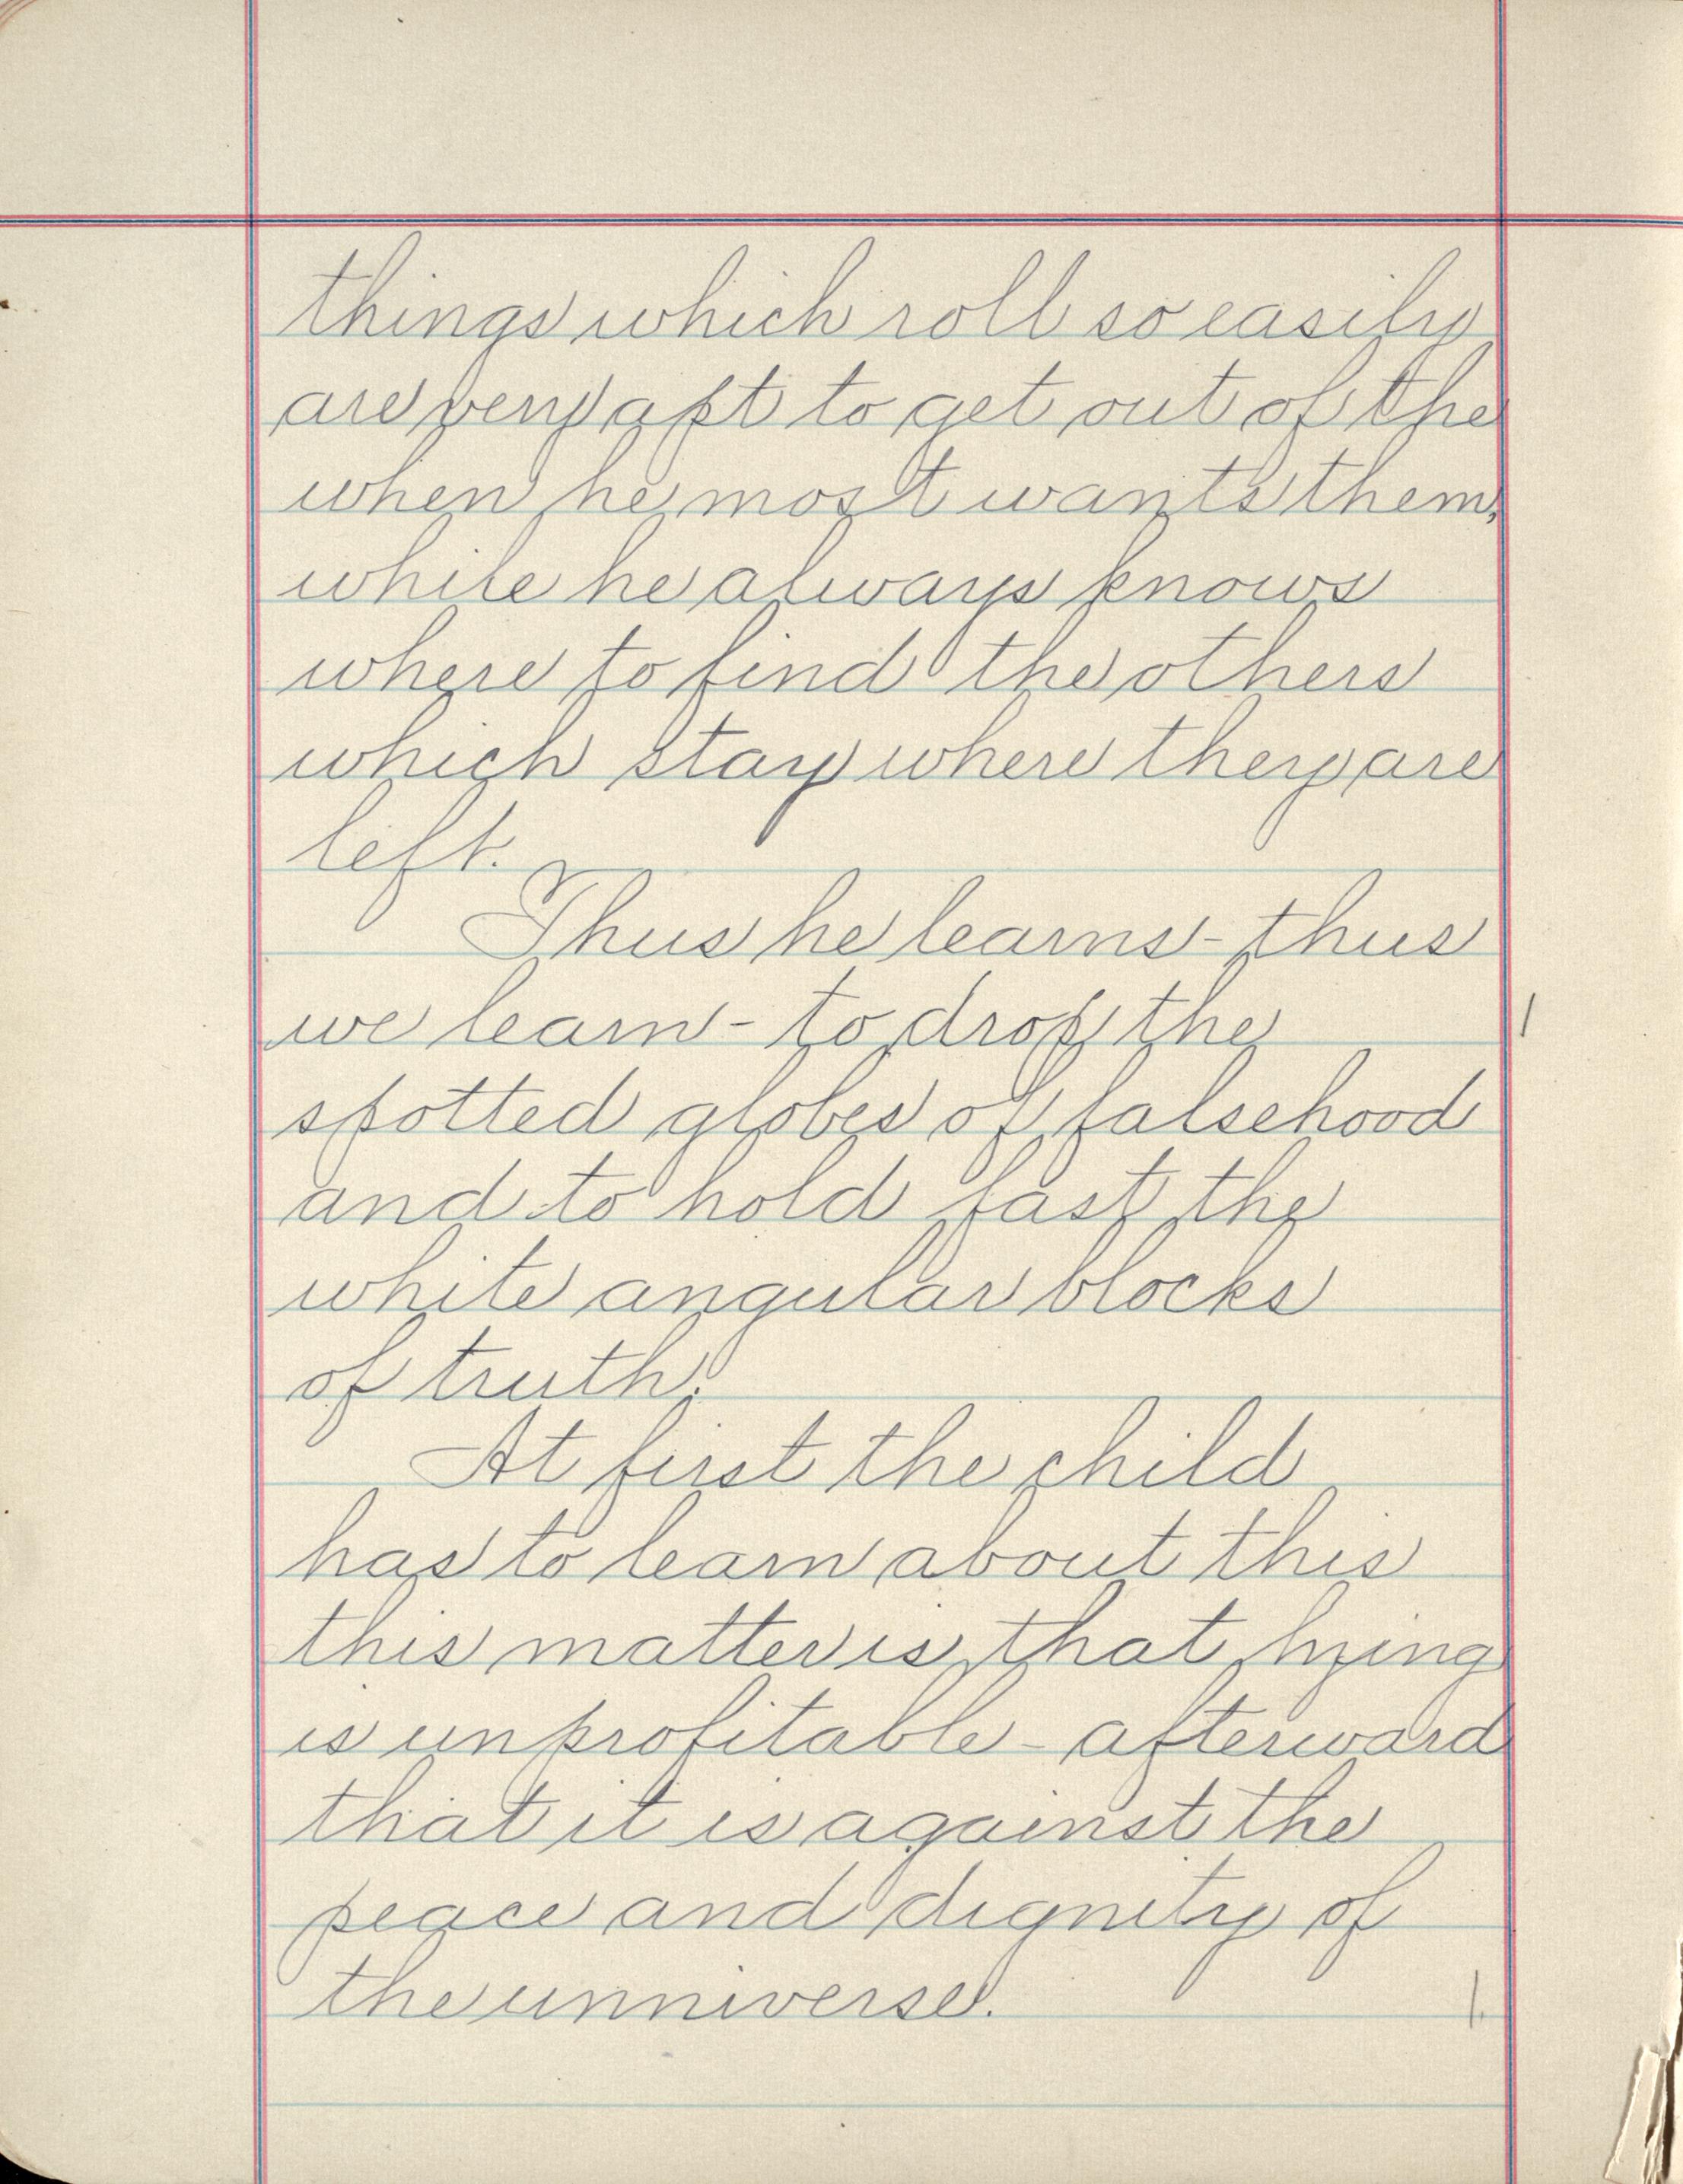 things which roll so easily
are very apt to get out of the
when he most wants them,
while he always knows
where to find the others
which stay where they are
left.
Thus he learns - thus
we learn - to drop the
spotted globes of falsehood
and to hold fast the
white angular blocks
of truth.
At first the child
has to learn about this
this matter is that lying
is unprofitable - afterward
that it is against the
peace and dignity of
the unniverse.